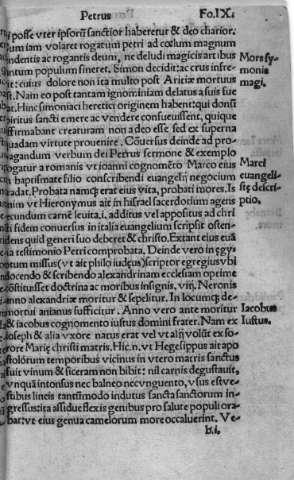 Petrus
Fo.IX.
posse vter ipsorū sanctior haberetur & deo charior.
iam volaret rogatum petri ad cœlum magnum
dentis ac rogantis deum, ne deludi magicis artibus
tum populum sineret. Simon decidit: ac crus infre-
cuius dolore non ita multo post Ariciæ mortuus
est. Nam eo post tantam ignominiam delatus a suis fue
rat. Hinc simoniaci heretici originem habent: qui donū
spiritus sancti emere ac vendere consueuissent, quique
affirmabant creaturam non a deo esse sed ex superna
quadam virtute prouenire. Cōuersus deinde ad pro-
pagandum verbum dei Petrus sermone & exemplo
rogatur a romanis vt ioanni cognomēto Marco eius
in baptismate filio conscribendi euangelij negocium
tradat. Probata namq; erat eius vita, probati mores. Is
enim vt Hieronymus ait in hisrael sacerdotium agens
secundum carnē leuita. i. additus vel appositus ad chri
sti fidem conuersus in italia euangelium scripsit osten-
dens quid generi suo deberet & christo. Extant eius euā
testimonio Petri comprobata. Deinde vero in ęgy
ptum missus (vt ait philo iudęus) scriptor egregius vbi
docendo & scribendo alexandrinam ecclesiam optime
constituisset doctrina ac moribus insignis. viii. Neronis
anno alexandriæ moritur & sepelitur. In locumq; de-
mortui anianus sufficitur. Anno vero ante moritur
& iacobus cognomento iustus domini frater. Nam ex
ioseph & alia vxore natus erat vel vt alij volūt ex so-
rore Marię christi matris. Hic. n. vt Hegesippus ait apo
stolórum temporibus vicinus in vtero matris sanctus
fuit vinum & siceram non bibit: nil carnis degustauit,
nunquā intonsus nec balneo nec vnguento, vsus est ve-
stibus lineis tantūmodo indutus sancta sanctorum in-
gressus ita assidue flexis genibus pro salute populi ora-
bat: vt eius genua camelorum more occaluerint. Ve-
b.i.
Mors sy-
monis
magi.
Marci
euangeli-
stę descri-
ptio.
Iacobus
Iustus.